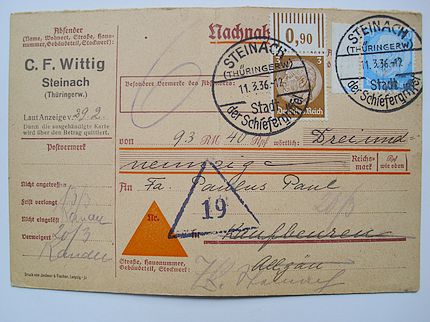 Absender
(Name, Wohnort, Straße, Haus-
nummer, Gebäudeteil, Stockwerk):
C. F. Wittig
Steinach
(Thüringerw.)
Laut Anzeige v. 29.2.
Durch die ausgehändigte Karte
wird über den Betrag quittiert.
Postvermerk
Nicht angetroffen
Frist verlangt
Nicht eingelöst
Verweigert 20/3
Nachnahme
Besondere Vermerke des Absenders:
0,90
3
3
Deutsches Reich
STEINACH
(THÜRINGERW)
11.3.36.-12
Stadt
der Schiefergriffel
STEINACH
(THÜRINGERW)
11.3.36.-12
Stadt
der Schiefergriffel
von 93 RM 40 Rpf wörtlich: Dreiund-
neunzig
Reichs-
mark
Rpf
wie oben
An Fa. Paulus Paul
Nr.
19
in Kaufbeuren
Allgäu
Straße, Hausnummer,
Gebäudeteil, Stockwerk: